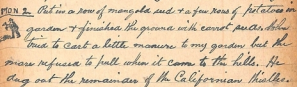 MON 2. Put in a row of mangold seed & a few rows of potatoes in
garden & finished the ground with carrot seeds. John
tried to cart a little manure to my garden but the
mare refused to pull when it came to the hills. He
dug out the remainder of the Californian thistles.